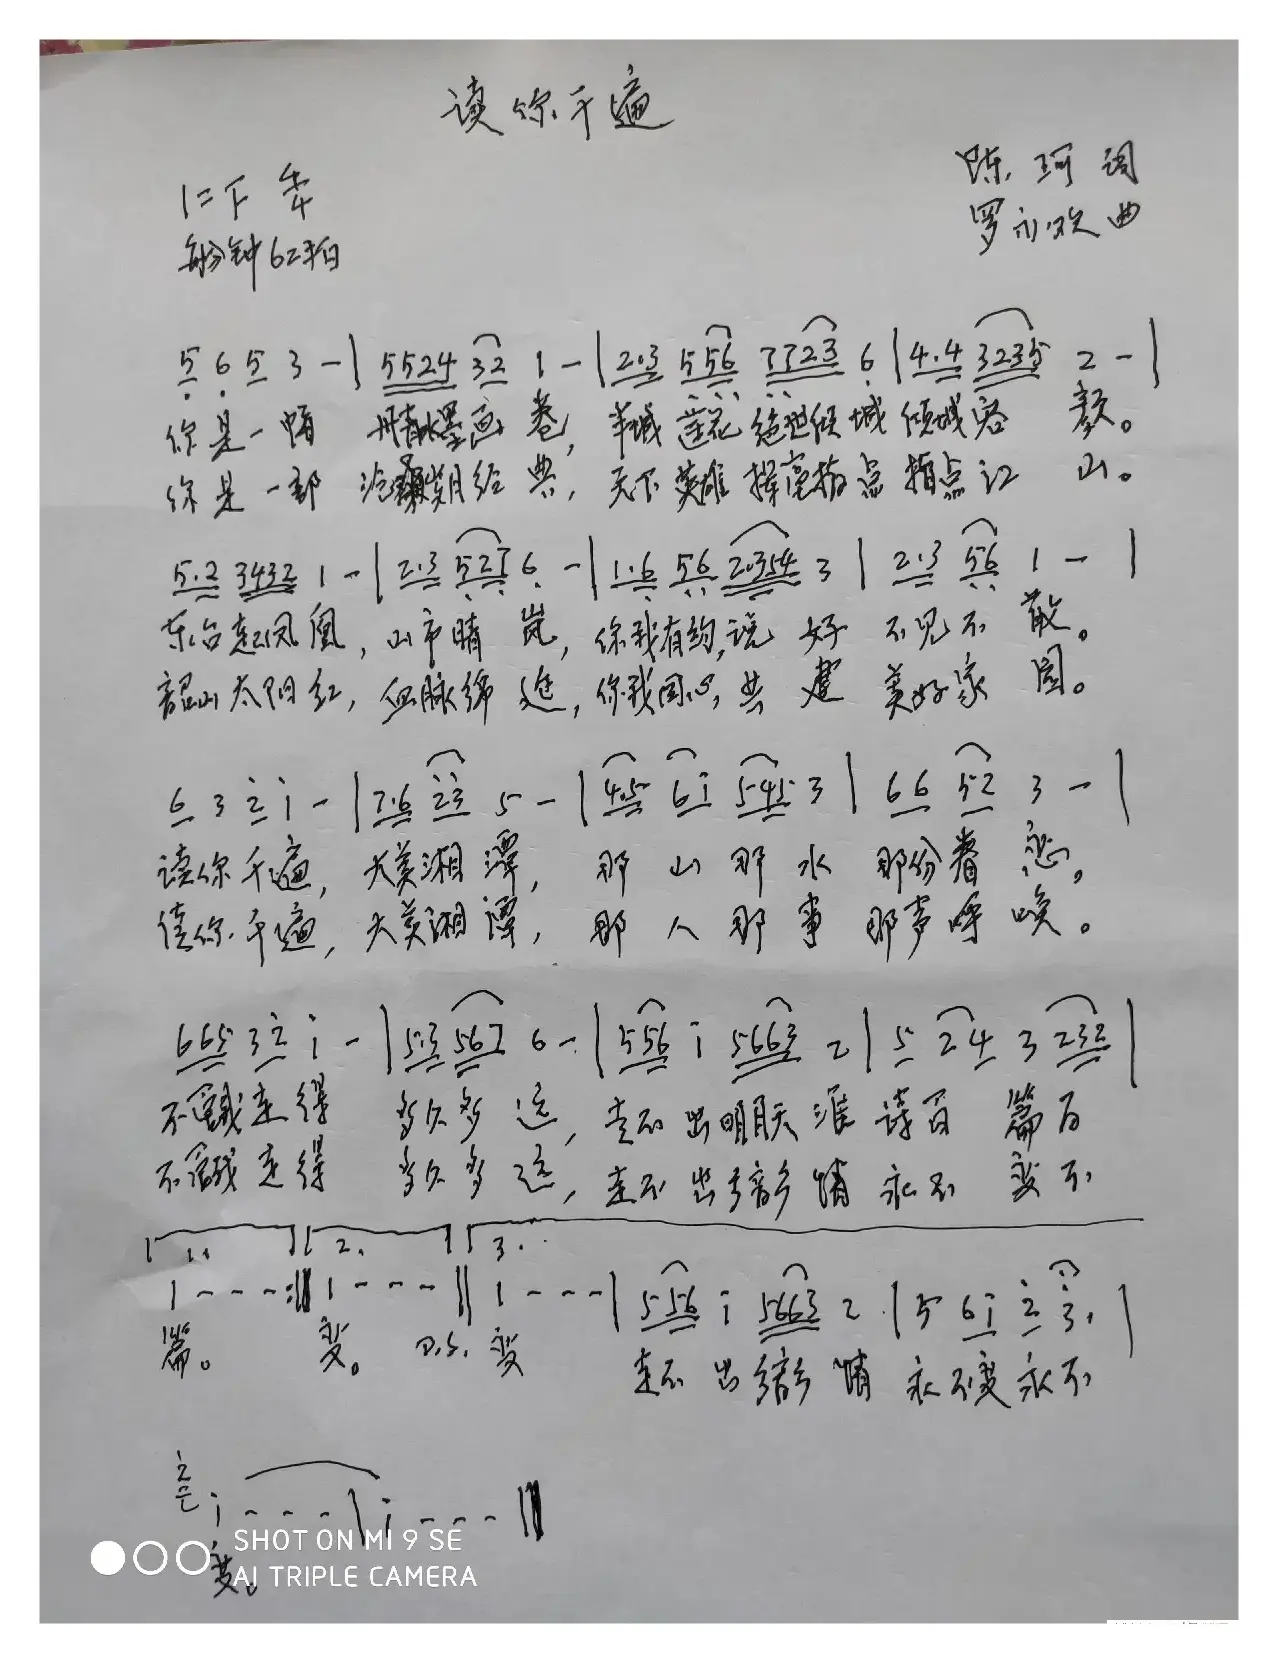 读你千遍
陈珂词
1=F 4/4
罗永欢曲
每分钟62拍
5 6 5 3 - | 5524 32 1 - | 2.3 556 7723 6 | 4.4 3235 2 - |
你是一幅 丹青水墨画卷，羊城莲花绝世倾城倾城容颜。
你是一部 沧桑岁月经典，天下英雄挥毫指点指点江山。
5.2 3432 1 - | 2.3 527 6 - | 1.6 56 2.354 3 | 2.3 56 1 - |
东台起凤凰，山市晴岚，你我有约，说好不见不散。
韶山太阳红，血脉绵延，你我同心，共建美好家园。
6 3 2 i - | 7.6 23 5 - | 4.5 6i 5.45 3 | 66 52 3 - |
读你千遍，大美湘潭，那山那水那份眷恋。
读你千遍，大美湘潭，那人那事那声呼唤。
665 32 i - | 5.3 567 6 - | 556 i 5663 2 | 5 24 3 232 |
不管我走得 多久多远，走不出明天 诗百篇百
不管我走得 多久多远，走不出乡音乡情永不变不
1. 2. 3.
1 - - - :|| 1 - - - || 1 - - - | 556 i 5663 2 | 5 6i 2 3. |
篇。 变。 D.S. 变 走不出乡音乡情永不变永不
2 i - - - | i - - - ||
变。
SHOT ON MI 9 SE
AI TRIPLE CAMERA